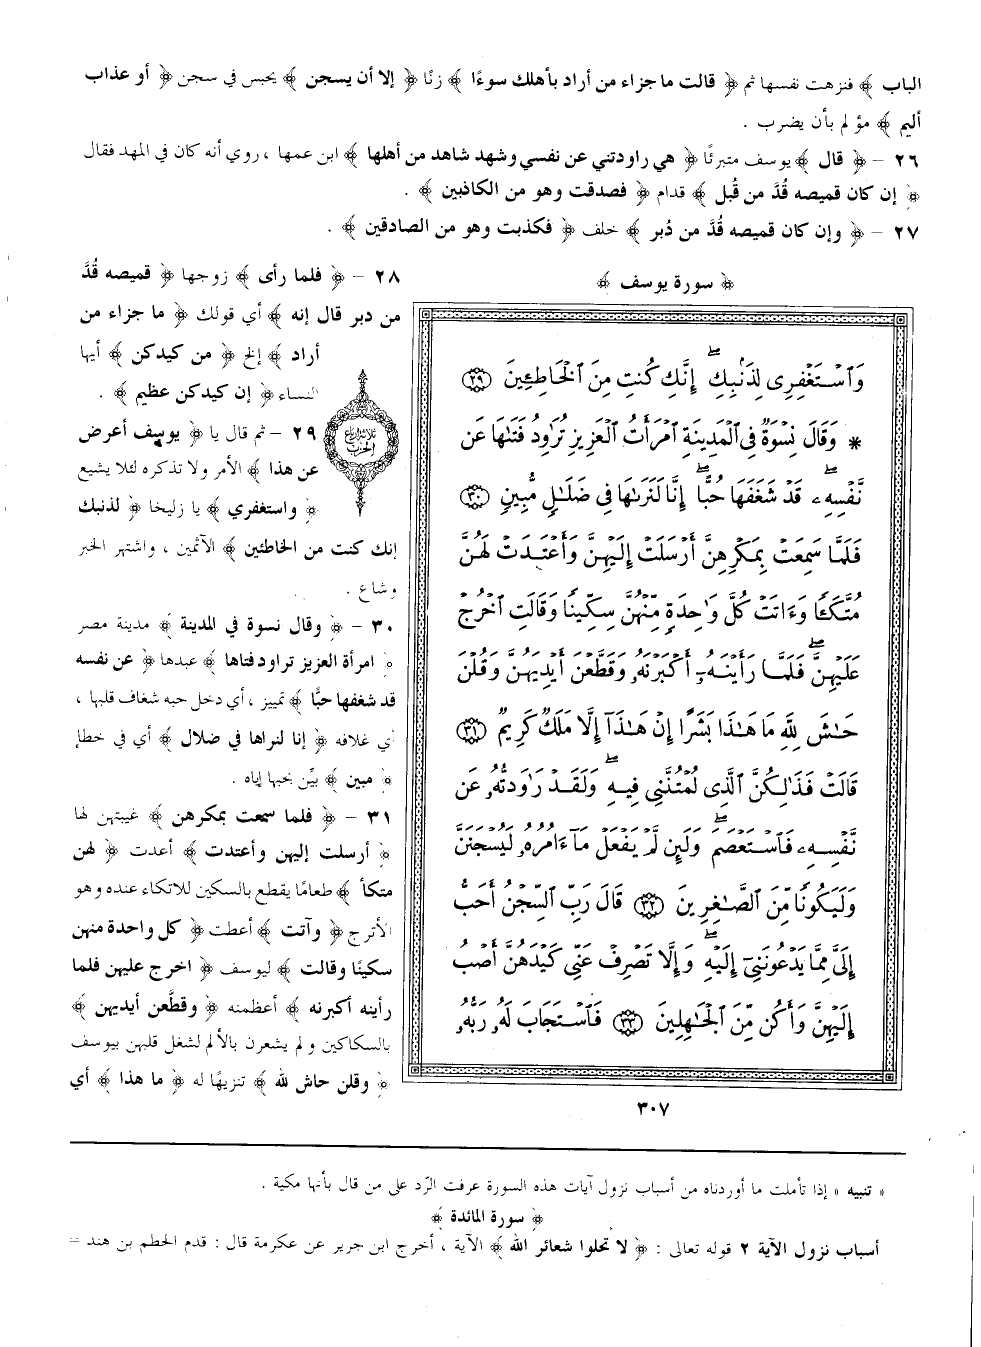 الباب ﴾ فنزهت نفسها ثم ﴿ قالت ما جزاء من أراد بأهلك سوءًا ﴾ زنًا ﴿ إلا أن يسجن ﴾ يحبس في سجن ﴿ أو عذاب
أليم ﴾ مؤلم بأن يضرب .
٢٦ – ﴿ قال ﴾ يوسف متبرئًا ﴿ هي راودتني عن نفسي وشهد شاهد من أهلها ﴾ ابن عمها ، روي أنه كان في المهد فقال
﴿ إن كان قميصه قُدَّ من قُبل ﴾ قدام ﴿ فصدقت وهو من الكاذبين ﴾ .
٢٧ – ﴿ وإن كان قميصه قُدَّ من دُبر ﴾ خلف ﴿ فكذبت وهو من الصادقين ﴾ .
﴿ سورة يوسف ﴾
وَٱسْتَغْفِرِى لِذَنۢبِكِ ۖ إِنَّكِ كُنتِ مِنَ ٱلْخَاطِـِٔينَ ٢٩
* وَقَالَ نِسْوَةٌ فِى ٱلْمَدِينَةِ ٱمْرَأَتُ ٱلْعَزِيزِ تُرَٰوِدُ فَتَىٰهَا عَن
نَّفْسِهِۦ ۖ قَدْ شَغَفَهَا حُبًّا ۖ إِنَّا لَنَرَىٰهَا فِى ضَلَـٰلٍ مُّبِينٍ ٣٠
فَلَمَّا سَمِعَتْ بِمَكْرِهِنَّ أَرْسَلَتْ إِلَيْهِنَّ وَأَعْتَدَتْ لَهُنَّ
مُتَّكَـًٔا وَءَاتَتْ كُلَّ وَٰحِدَةٍ مِّنْهُنَّ سِكِّينًا وَقَالَتِ ٱخْرُجْ
عَلَيْهِنَّ ۖ فَلَمَّا رَأَيْنَهُۥٓ أَكْبَرْنَهُۥ وَقَطَّعْنَ أَيْدِيَهُنَّ وَقُلْنَ
حَـٰشَ لِلَّهِ مَا هَـٰذَا بَشَرًا إِنْ هَـٰذَآ إِلَّا مَلَكٌ كَرِيمٌ ٣١
قَالَتْ فَذَٰلِكُنَّ ٱلَّذِى لُمْتُنَّنِى فِيهِ ۖ وَلَقَدْ رَٰوَدتُّهُۥ عَن
نَّفْسِهِۦ فَٱسْتَعْصَمَ ۖ وَلَئِن لَّمْ يَفْعَلْ مَآ ءَامُرُهُۥ لَيُسْجَنَنَّ
وَلَيَكُونًا مِّنَ ٱلصَّـٰغِرِينَ ٣٢ قَالَ رَبِّ ٱلسِّجْنُ أَحَبُّ
إِلَىَّ مِمَّا يَدْعُونَنِىٓ إِلَيْهِ ۖ وَإِلَّا تَصْرِفْ عَنِّى كَيْدَهُنَّ أَصْبُ
إِلَيْهِنَّ وَأَكُن مِّنَ ٱلْجَـٰهِلِينَ ٣٣ فَٱسْتَجَابَ لَهُۥ رَبُّهُۥ
٣٠٧
٢٨ – ﴿ فلما رأى ﴾ زوجها ﴿ قميصه قُدَّ
من دبر قال إنه ﴾ أي قولك ﴿ ما جزاء من
أراد ﴾ إلخ ﴿ من كيدكن ﴾ أيها
النساء ﴿ إن كيدكن عظيم ﴾ .
ثلاثة أرباع
الحزب
٢٩ – ثم قال يا ﴿ يوسف أعرض
عن هذا ﴾ الأمر ولا تذكره لئلا يشيع
﴿ واستغفري ﴾ يا زليخا ﴿ لذنبك
إنك كنت من الخاطئين ﴾ الآثمين ، واشتهر الخبر
وشاع .
٣٠ – ﴿ وقال نسوة في المدينة ﴾ مدينة مصر
﴿ امرأة العزيز تراود فتاها ﴾ عبدها ﴿ عن نفسه
قد شغفها حبًّا ﴾ تمييز ، أي دخل حبه شغاف قلبها ،
أي غلافه ﴿ إنا لنراها في ضلال ﴾ أي في خطإ
﴿ مبين ﴾ بيِّن بحبها إياه .
٣١ – ﴿ فلما سمعت بمكرهن ﴾ غيبتهن لها
﴿ أرسلت إليهن وأعتدت ﴾ أعدت ﴿ لهن
متكأ ﴾ طعامًا يقطع بالسكين للاتكاء عنده وهو
الأترج ﴿ وآتت ﴾ أعطت ﴿ كل واحدة منهن
سكينًا وقالت ﴾ ليوسف ﴿ اخرج عليهن فلما
رأينه أكبرنه ﴾ أعظمنه ﴿ وقطَّعن أيديهن ﴾
بالسكاكين ولم يشعرن بالألم لشغل قلبهن بيوسف
﴿ وقلن حاش لله ﴾ تنزيهًا له ﴿ ما هذا ﴾ أي
« تنبيه » إذا تأملت ما أوردناه من أسباب نزول آيات هذه السورة عرفت الرّد على من قال بأنها مكية .
﴿ سورة المائدة ﴾
أسباب نزول الآية ٢ قوله تعالى : ﴿ لا تحلوا شعائر الله ﴾ الآية ، أخرج ابن جرير عن عكرمة قال : قدم الحطم بن هند =